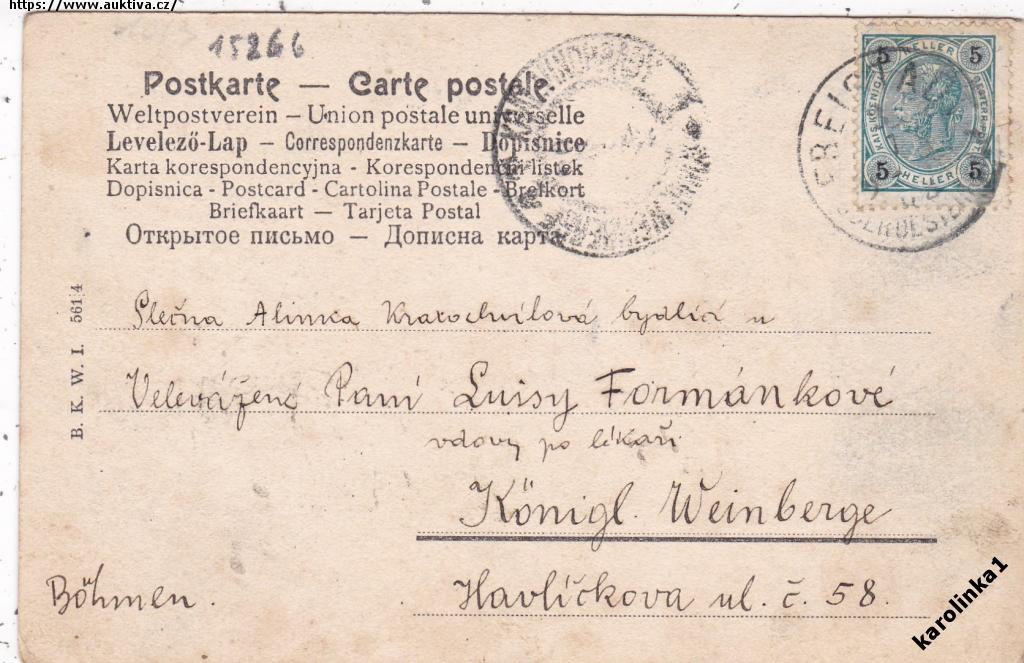 https://www.auktiva.cz/
15266
Postkarte — Carte postale
Weltpostverein – Union postale universelle
Levelező-Lap – Correspondenzkarte – Dopisnice
Karta korespondencyjna - Korespondenční lístek
Dopisnica - Postcard - Cartolina Postale - Brefkort
Briefkaart — Tarjeta Postal
Открытое письмо — Дописна карта
5 HELLER 5
5 HELLER 5
B. K. W. I. 561|4
Slečna Alinka Kratochvílová bydlící u
Velevážené Paní Luisy Formánkové
vdovy po lékaři
Königl. Weinberge
Böhmen. Havlíčkova ul. č. 58.
karolinka1